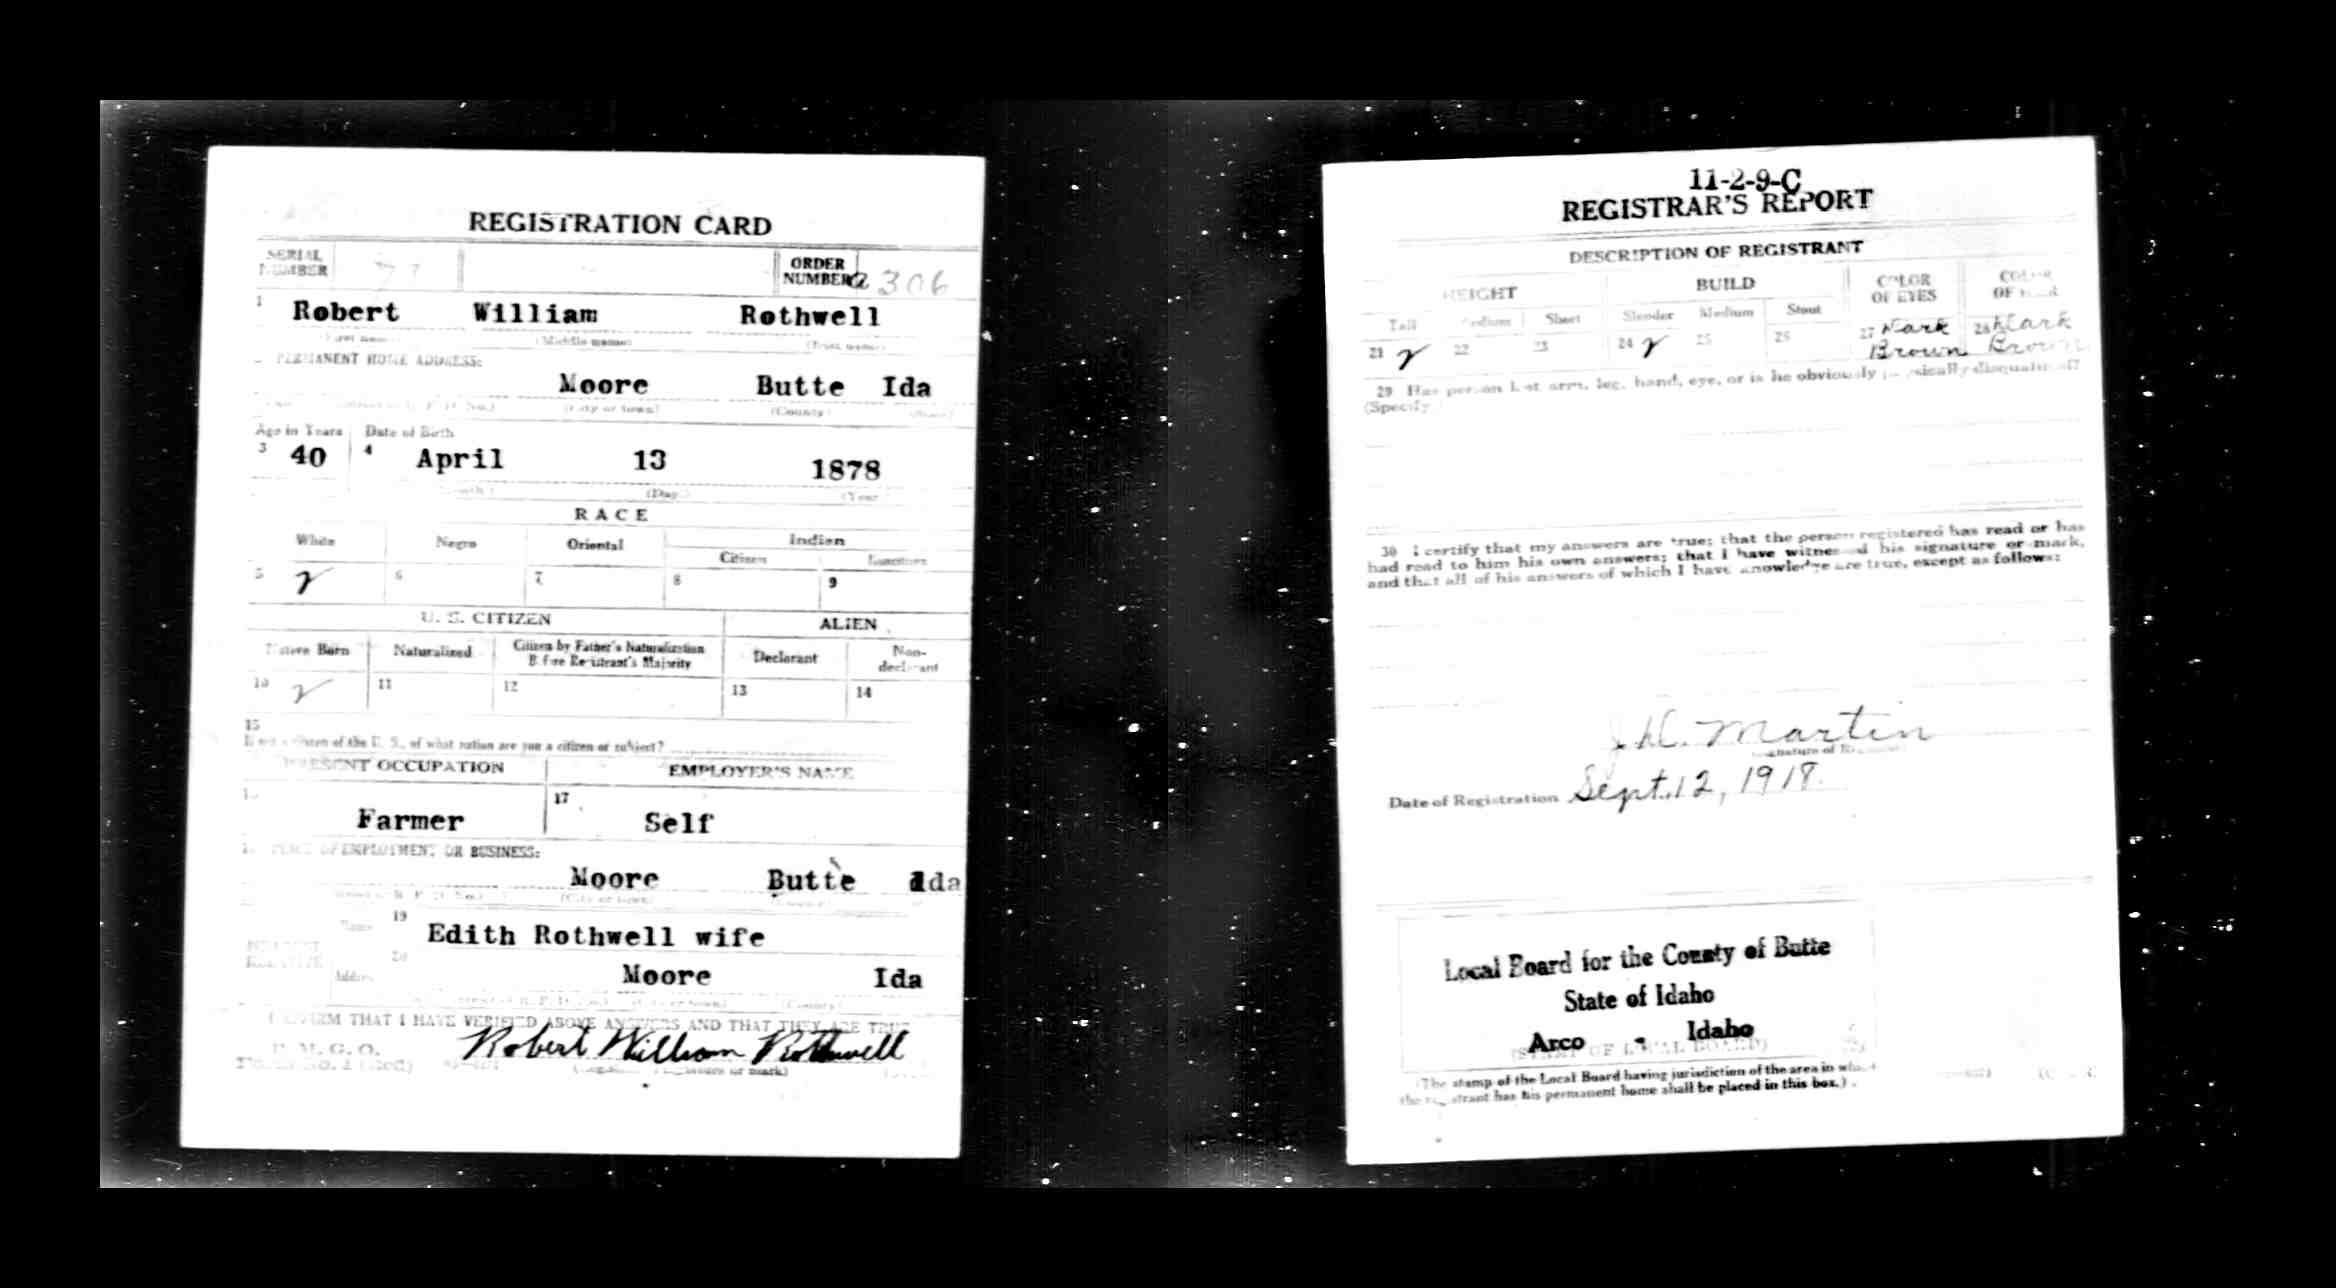 REGISTRATION CARD
SERIAL NUMBER 77 ORDER NUMBER 2306
1 Robert William Rothwell
(Middle name)
PERMANENT HOME ADDRESS:
Moore Butte Ida
(City or town) (County) (State)
Age in Years Date of Birth
3 40 4 April 13 1878
(Day) (Year)
RACE
White Negro Oriental Indian
Citizen
5 6 7 8 9
U. S. CITIZEN ALIEN
Native Born Naturalized Citizen by Father's Naturalization Before Registrant's Majority Declarant Non-declarant
10 11 12 13 14
15
If not a citizen of the U. S., of what nation are you a citizen or subject?
PRESENT OCCUPATION EMPLOYER'S NAME
17
Farmer Self
PLACE OF EMPLOYMENT OR BUSINESS:
Moore Butte Ida
(City or town)
Name 19 Edith Rothwell wife
Address 20 Moore Ida
I AFFIRM THAT I HAVE VERIFIED ABOVE ANSWERS AND THAT THEY ARE TRUE
P. M. G. O.
Form No. 1 (Red)
Robert William Rothwell
(Signature or mark)
11-2-9-C
REGISTRAR'S REPORT
DESCRIPTION OF REGISTRANT
HEIGHT BUILD COLOR OF EYES COLOR OF HAIR
Tall Medium Short Slender Medium Stout
21 22 23 24 25 26 27 Dark Brown 28 Dark Brown
29 Has person lost arm, leg, hand, eye, or is he obviously physically disqualified?
(Specify.)
30 I certify that my answers are true; that the person registered has read or has
had read to him his own answers; that I have witnessed his signature or mark,
and that all of his answers of which I have knowledge are true, except as follows:
Martin
(Signature of Registrar)
Date of Registration Sept. 12, 1918.
Local Board for the County of Butte
State of Idaho
Arco - Idaho
(STAMP OF LOCAL BOARD)
(The stamp of the Local Board having jurisdiction of the area in which
the registrant has his permanent home shall be placed in this box.)